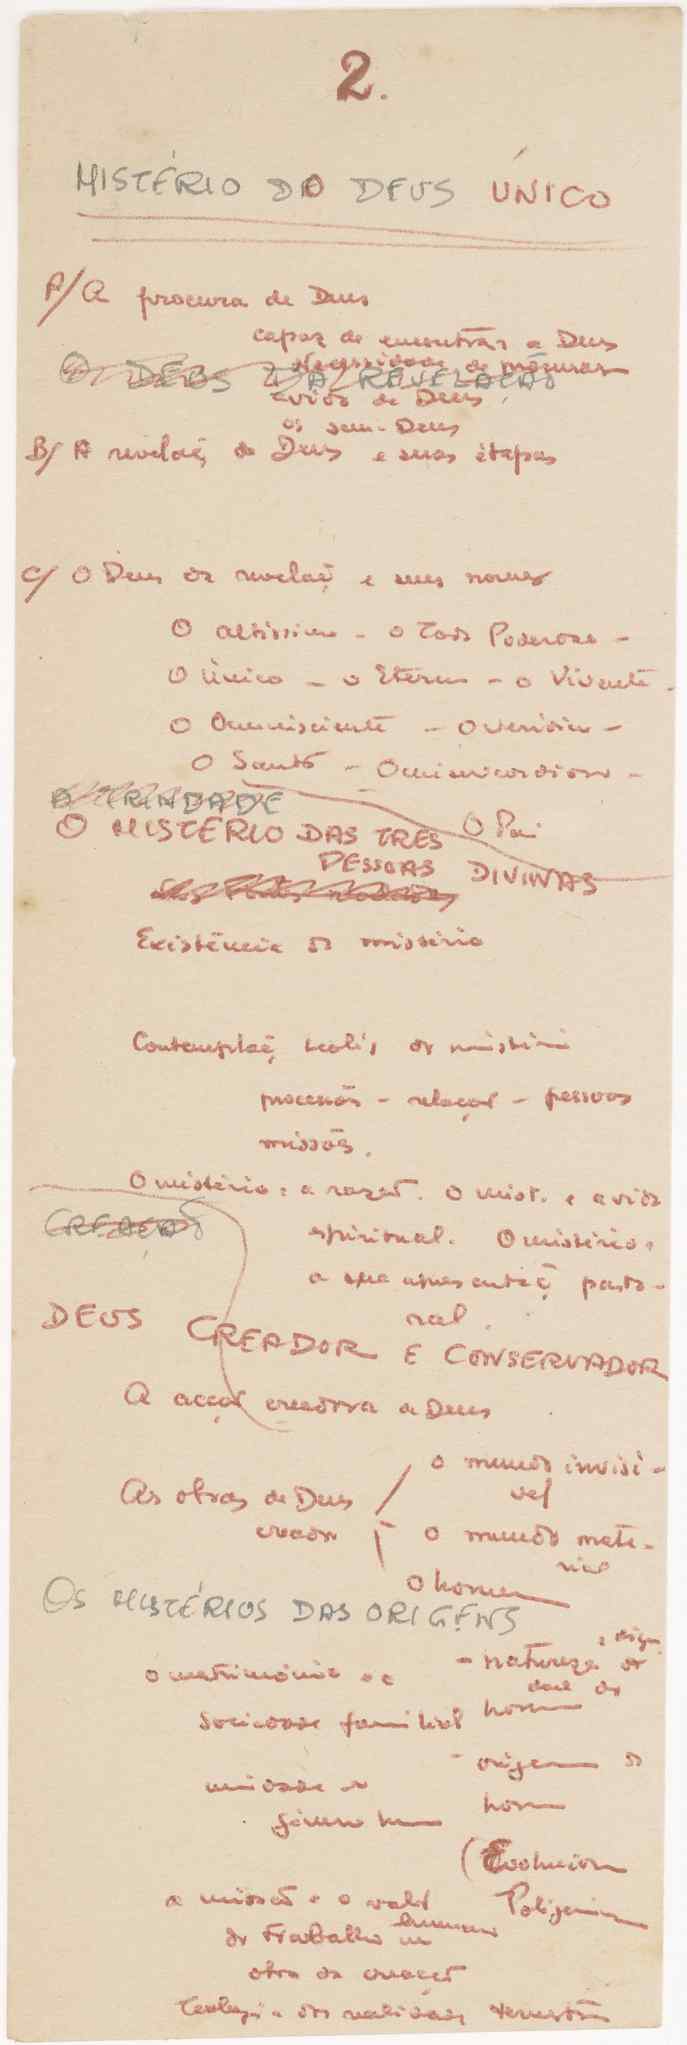 2.
MISTÉRIO DO DEUS ÚNICO
A/ A procura de Deus
capaz de encontrar a Deus
Necessidade de procurar
O DEUS DA REVELAÇÃO
a vida de Deus
os sem-Deus
B/ A revelaç̃ de Deus e suas etapas
C/ O Deus da revelaç̃ e seus nomes
O altíssimo - o Todo Poderoso -
O Único - o Eterno - o Vivente -
O Omnisciente - O verídico -
O Santo - O misericordioso -
A TRINDADE
O Pai
O MISTÉRIO DAS TRES
PESSOAS DIVINAS
Existência do mistério
Contemplaç̃ teoló, do mistério
processões - relações - pessoas
missões.
O mistério e a razão. O mist. e a vida
CREAÇÃO
espiritual. O mistério e
a sua apresentaç̃ pasto-
ral.
DEUS CREADOR E CONSERVADOR
A acção creadora de Deus
o mundo invisí-
vel
As obras de Deus
creador
o mundo mate-
rial
O homem
OS MISTÉRIOS DAS ORIGENS
o matrimónio e a
- natureza e dign
dade do
homem
sociedade familial
- origem do
homem
unidade do
género hum
(Evolucion
Poligenism
a missão e o valor
do trabalho humano
obra da creação
Teologia das realidades terrestres